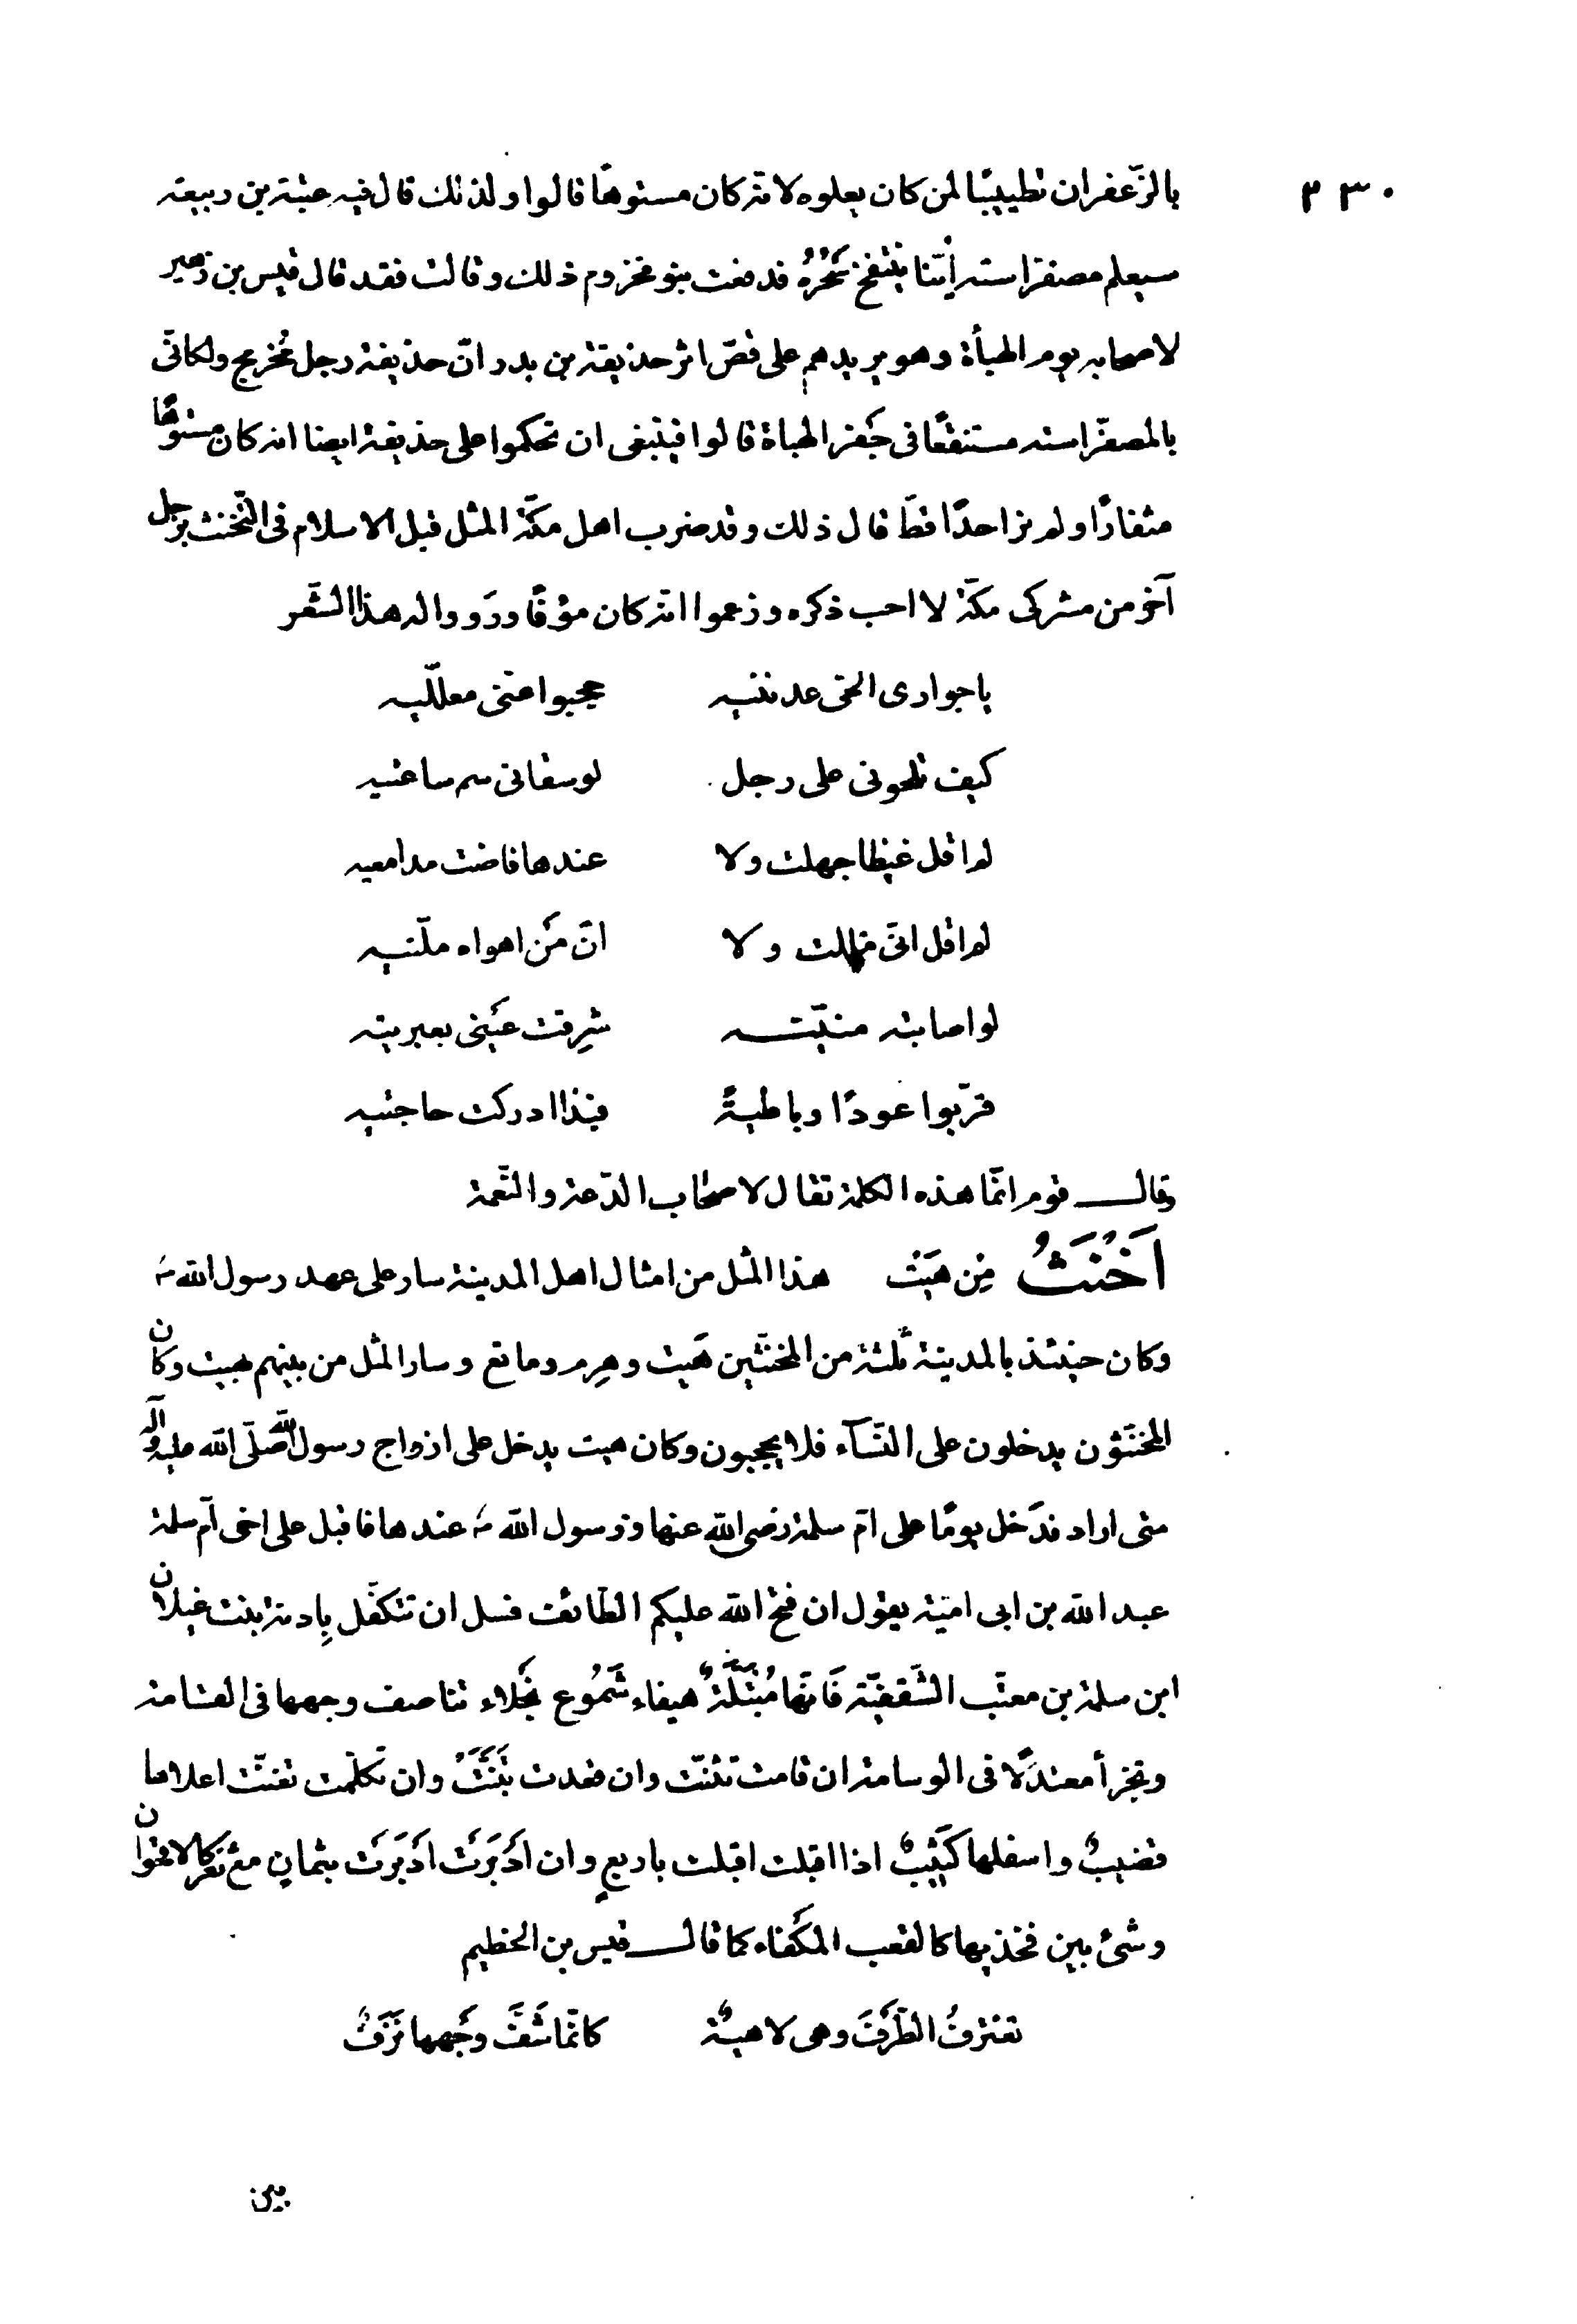 ٣٣٠
بالزّعفران تطييبًا لمن كان يعلوه لانّه كان مستوهًا قالوا ولذلك قال فيه عتبة بن ربيعة
سيعلم مصفر استه أيّنا ينتفخ سَحْرُهُ فدفعت بنو مخزوم ذلك وقالت فقد قال قيس بن زهير
لاصحابه يوم الهبأة وهو يريدهم على قصّ اثر حذيفة بن بدر انّ حذيفة رجل مخرفج ولكانّى
بالمصفّر استه مستنقعًا فى جَفر الهباة قالوا فينبغى ان تحكموا على حذيفة ايضا انه كان مستوهًا
مثفارًا ولم نر احدًا قطّ قال ذلك وقد ضرب اهل مكّة المثل قبل الاسلام فى التّخنث برجل
آخر من مشركى مكّة لا احب ذكره وزعموا انّه كان مؤفًا ورَووا له هذا الشّعر
يا جوارى الحىّ عدننيه حجبوا عنّى معلّليه
كيف تلحونى على رجل لو سقانى سم ساعتيه
لم اقل غيظا جهلت ولا عندها فاضت مدامعيه
لم اقل انّى مللت ولا انّ مَن اهواه ملّنيه
لو اصابته منيّته شرِقت عَينى بعبريته
قرّبوا عودًا وباطيةً فبذا ادركت حاجتيه
وقال قوم انّما هذه الكلمة تقال لاصحاب الدّعة والنّعمة
اَخْنَثُ مِن هَيْت هذا المثل من امثال اهل المدينة سار على عهد رسول الله ص
وكان حينئذ بالمدينة ثلثة من المخنّثين هَيت وهِرم ومانع وسار المثل من بينهم بهيت وكان
المخنّثون يدخلون على النّسآء فلا يحجبون وكان هيت يدخل على ازواج رسول الله صلّى الله عليه وآله
متى اراد فدَخل يومًا على امّ سلمة رضى الله عنها ورسول الله ص عندها فاقبل على اخى اّم سلمة
عبد الله بن ابى اميّة يقول ان فتح الله عليكم الطّائف فسل ان تنكفّل بِادنة بنت غيلان
ابن سلمة بن معتّب الثّقفيّة فَانّها مُبتّلَةٌ هيفاء شَمُوع نَجْلاء تناصف وجهها فى القسامة
وتجزأ معتدلًا فى الوسامة ان قامت تثنّت وان قعدت تبَنَّتْ وان تكلّمت تغنّت اعلاها
قضيبٌ واسفلها كَثِيْبٌ اذا اقبلت اقبلت باربعٍ وان اَدْبَرَتْ اَدْبَرَتْ بثمانٍ مع ثغر كالاقحوان
وشئ بين فخذيها كالقعب المكْفاء كما قال قيس بن الخطيم
تغترقُ الطّرْفَ وهى لاهيةٌ كانّما شَفَّ وجْهها نَزَفٌ
بين